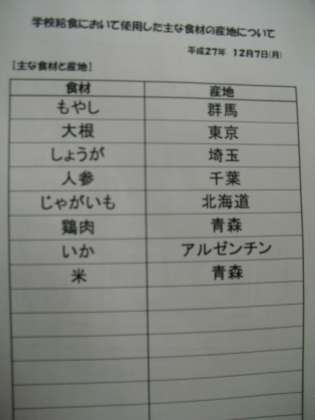 学校給食において使用した主な食材の産地について
平成27年 12月7日(月)
[主な食材と産地]
食材 産地
もやし 群馬
大根 東京
しょうが 埼玉
人参 千葉
じゃがいも 北海道
鶏肉 青森
いか アルゼンチン
米 青森